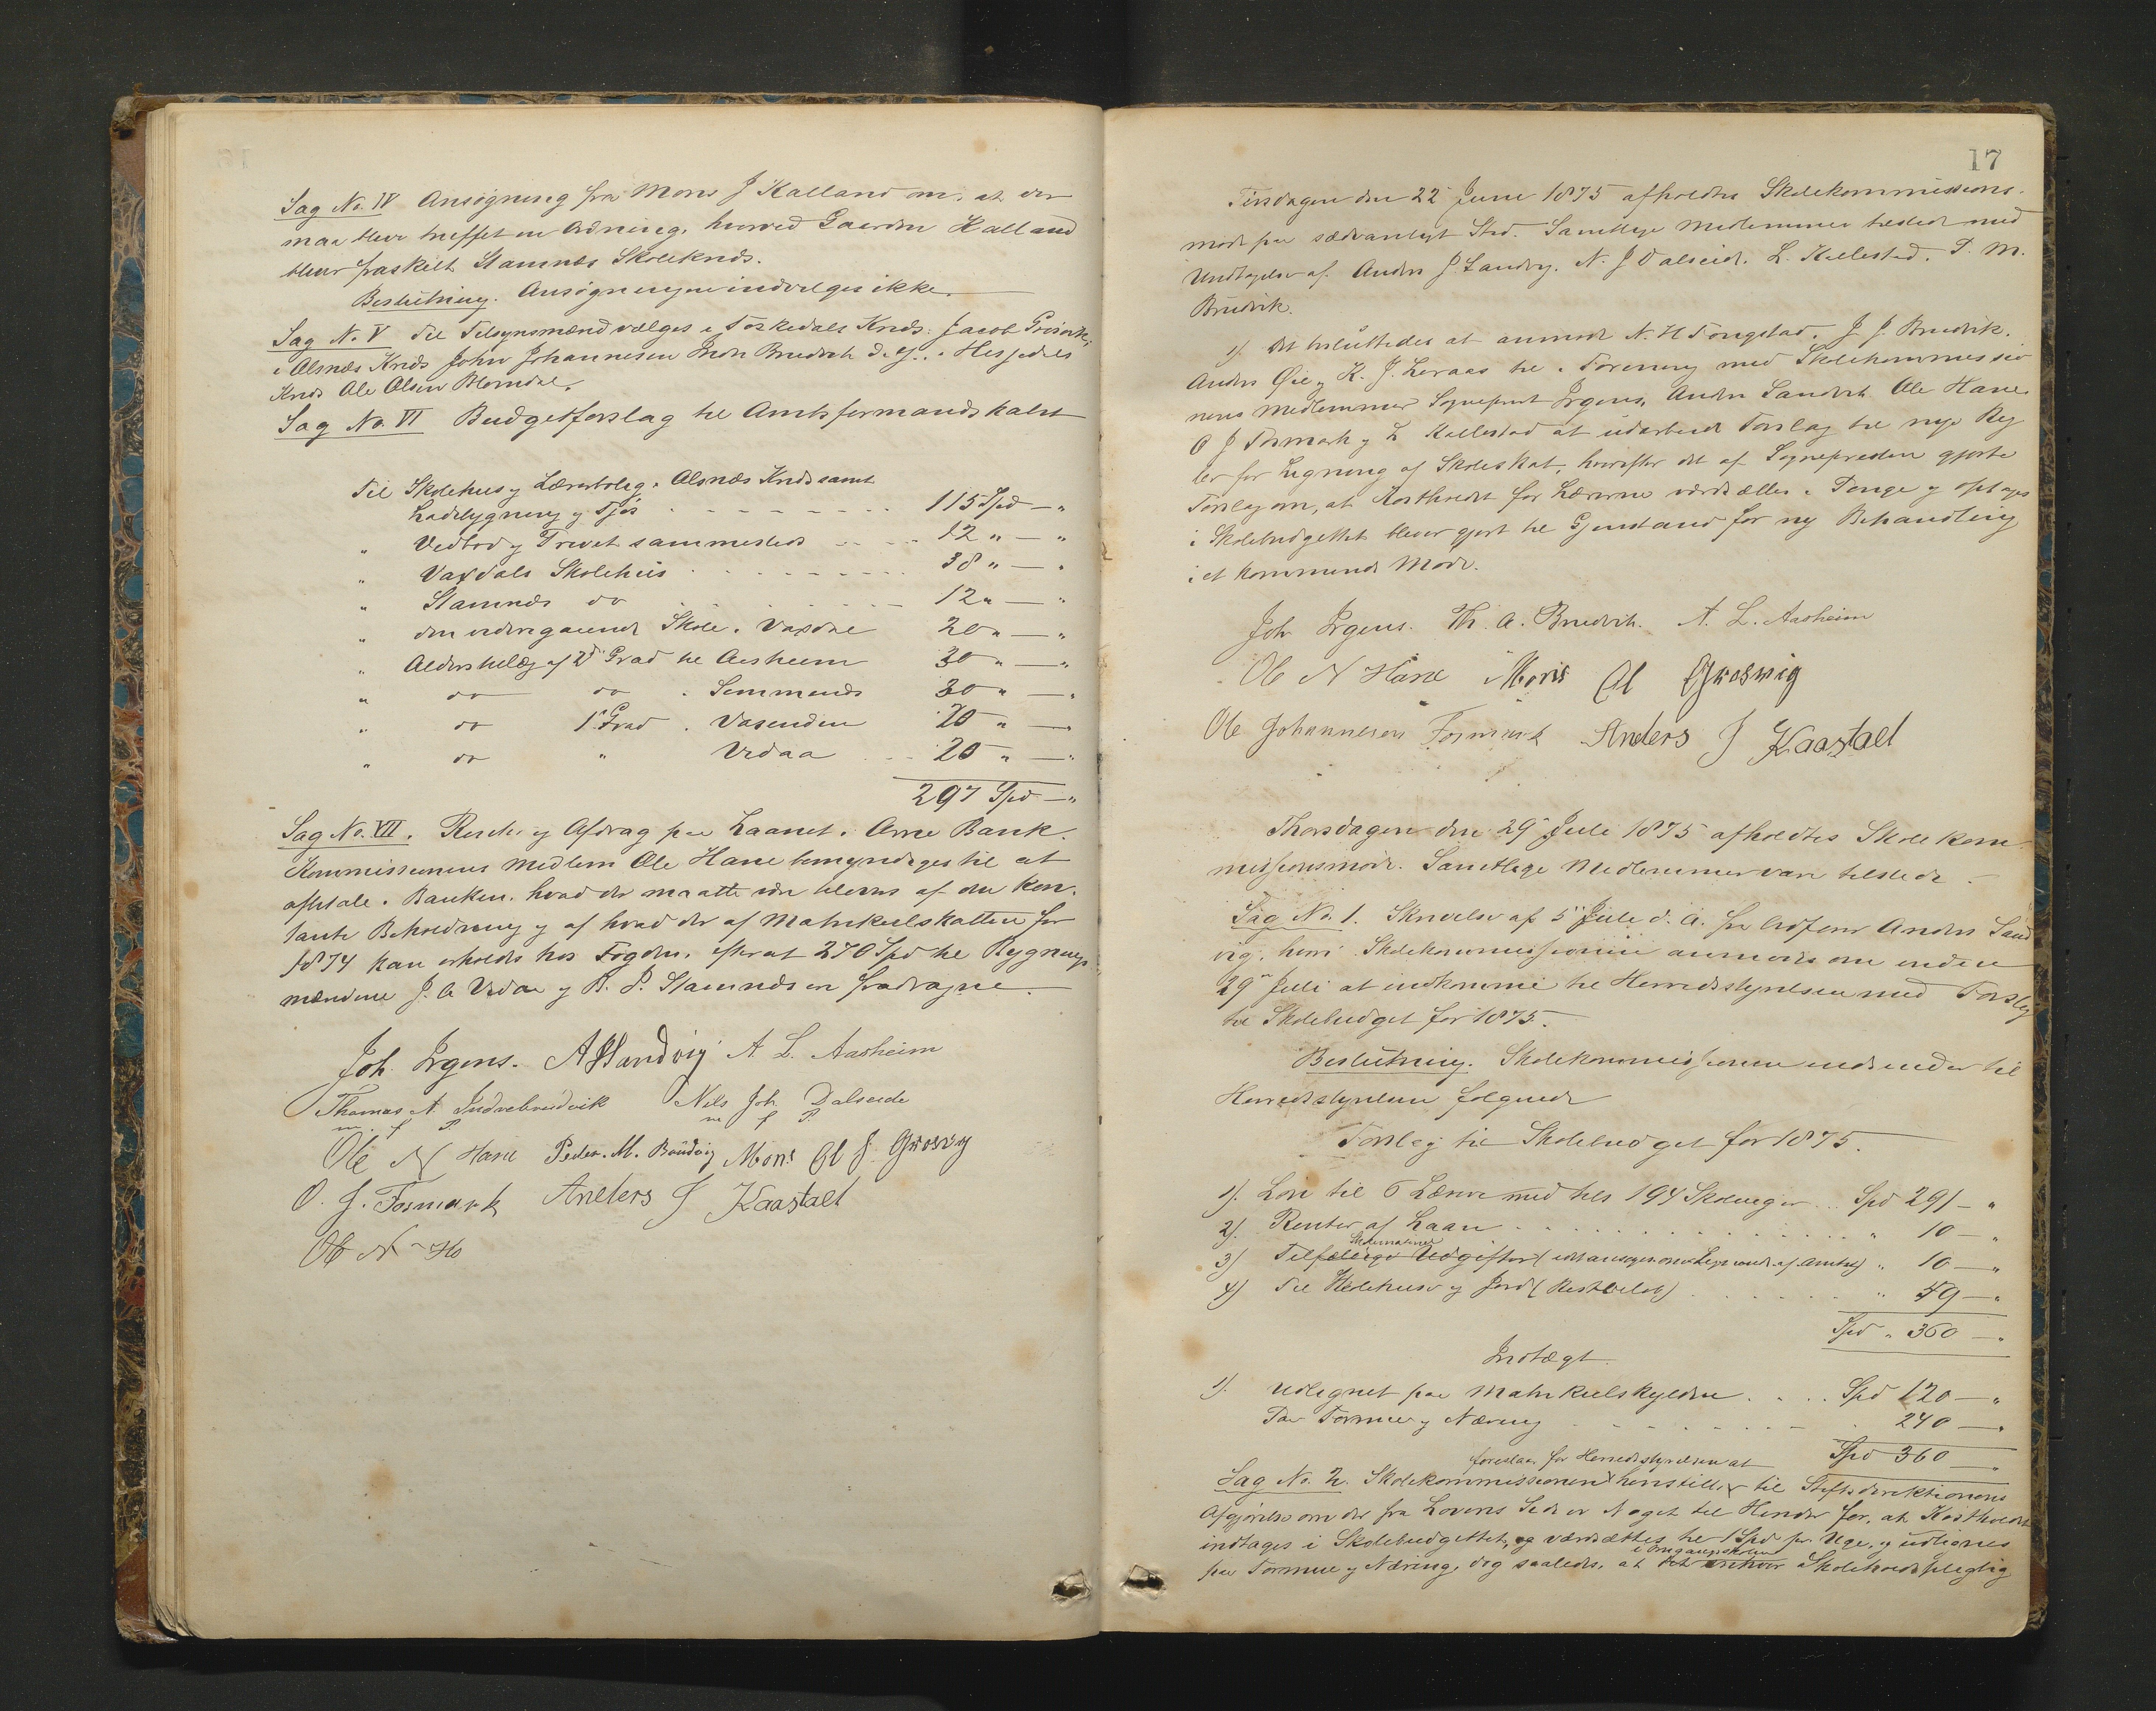 Sag No. IV Ansögning fra Mons J Kalland om, at der
maa blive truffet en Ordning, hvorved Gaarden Kalland
bliver fraskilt Stamnæs Skolekreds.
Beslutning. Ansøgningen indvilges ikke.
Sag No. V Til Tilsynsmænd vælges i Foskedals Kreds: Jacob
i Alsnæs Kreds John Johannesen Indre Bruvik og i Hesjedals
Kreds Ole Olsen Blomdal.
Sag No. VI Budgetforslag til Amtsformandskabet
Til Skolehus og Lærerbolig i Alsnæs Kreds samt
Ladebygning og Fjös 115 Spd — "
" Vedbod og Privet sammesteds 12 " — "
" Vaxdals Skolehus 38 " — "
" Stamnæs do 12 " — "
" den videregaaende Skole i Vaxdal 20 " — "
" Alderstillæg af 2d Grad til Aasheim 30 " — "
" do do " Semmends 30 " — "
" do 1ste Grad " Vasenden 20 " — "
" do " Vedaa 20 " — "
297 Spd — "
Sag No. VII. Renter og Afdrag paa Laanet i Arne Bank.
Kommissionens Medlem Ole Hane bemyndiges til at
afbetale i Banken, hvad der maatte være tilovers af den kon-
tante Beholdning og af hvad der af Matrikulskatten for
1874 kan erholdes hos Fogden, efterat 270 Spd til Bygnings-
mændene J. A Vedaa og B. P. Stamnæs er fradragne.
Joh. Irgens. A J Sandvig A. L. Aasheim
Thomas A Indrebruvik Nils Joh. Dalseide
m. f. P. m f P.
Ole N Hane Peder. M. Brüdvig Mons Ol J. Groswig
O. J. Fosmark Anders J Kaastad
Ole N Ho
17
Tirsdagen den 22 Juni 1875 afholdtes Skolekommissions-
möde paa sædvanligt Sted. Samtlige Medlemmer tilstede med
Undtagelse af Anders J. Sandvig, N. J Dalseid, L. Kallestad, P. M.
Bruvik.
1). Det besluttedes at anmode N. H Tongstad, J. J. Bruvik,
Anders Øie og K. J. Leraas til i Forening med Skolekommissio
nens Medlemmer Sognepræst Irgens, Anders Sandvik Ole Hane,
O J Fosmark og L Kallestad at udarbeide Forslag til nye Reg
ler for Ligning af Skoleskat, hvorefter det af Sognepresten gjorte
Forslag om, at Kostholdet for Lærerne værdsættes i Penge og optages
i Skolebudgettet bliver gjort til Gjenstand for ny Behandling
i et kommende Möde.
Joh Irgens. Th. A. Bruvik. A. L. Aasheim
Ole N Hane Mons Ol Groswig
Ole Johannesen Fosmark Anders J Kaastad
Thorsdagen den 29de Juli 1875 afholdtes Skolekom-
missionsmöde. Samtlige Medlemmer vare tilstede.
Sag No. 1. Skrivelse af 5te Juli d. A. fra Ordfører Anders Sand
vig, hvori Skolekommissionen anmodes om inden
29de Juli at indkomme til Herredsstyrelsen med Forslag
til Skolebudget for 1875.
Beslutning. Skolekommissionen indsender til
Herredsstyrelsen følgende
Forslag til Skolebudget for 1875.
1). Lön til 6 Lærere med tils 194 Skoleuger Spd 291 — "
2). Renter af Laan " 10 — "
Skolematriel
3) Tilfældige Udgifter " 10 — "
4) Til Skolehuse og Jord (Restbeløb) " 49 — "
Spd " 360 — "
Indtægt.
1). Udlignet paa Matrikulskylden Spd 120 — "
Paa Formue og Næring 240 — "
Spd 360 — "
foreslaar for Herredsstyrelsen at
Sag No. 2. Skolekommissionen henstiller til Stiftsdirektionens
Afgjørelse om der fra Lovens Side er Noget til Hinder for, at Kostholdet
indtages i Skolebudgettet, og værdsættes til 1 Spd pr. Uge, og udlignes
i Omgangsskolen
paa Formue og Næring, dog saaledes, at det enhver Skoleholdspligtig